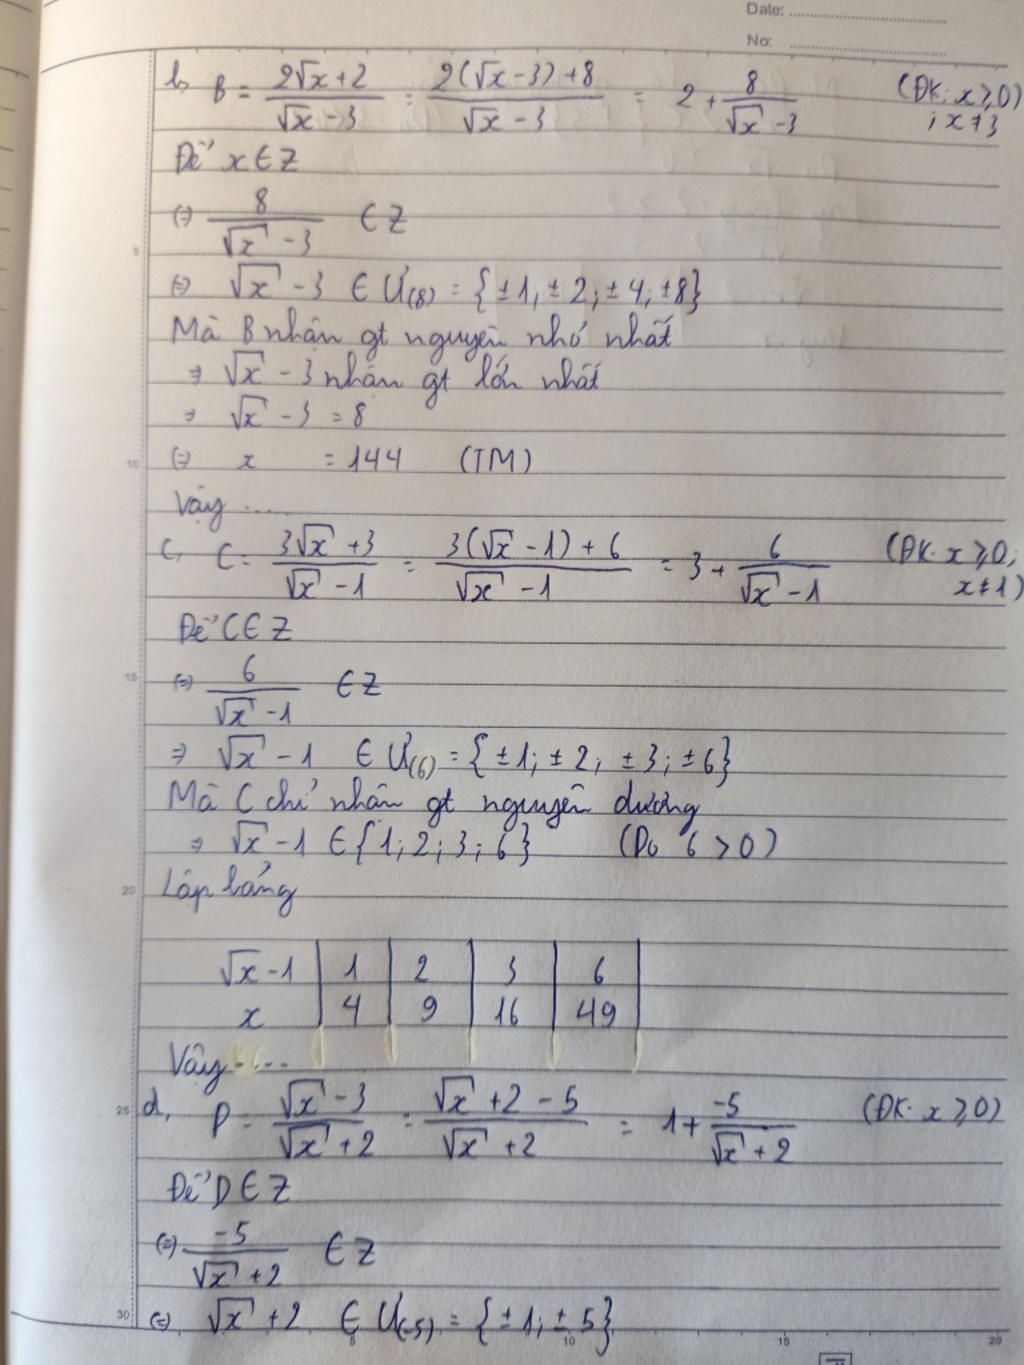 Date:
No:
b, B = (2√x + 2)/(√x - 3) = (2(√x - 3) + 8)/(√x - 3) = 2 + 8/(√x - 3) (ĐK: x ≥ 0; x ≠ 3)
Để x ∈ Z
(=) 8/(√x - 3) ∈ Z
(=) √x - 3 ∈ Ư(8) = {±1; ±2; ±4; ±8}
Mà B nhận gt nguyên nhỏ nhất
⇒ √x - 3 nhận gt lớn nhất
⇒ √x - 3 = 8
(=) x = 144 (TM)
Vậy .....
c, C = (3√x + 3)/(√x - 1) = (3(√x - 1) + 6)/(√x - 1) = 3 + 6/(√x - 1) (ĐK: x ≥ 0; x ≠ 1)
Để C ∈ Z
(=) 6/(√x - 1) ∈ Z
⇒ √x - 1 ∈ Ư(6) = {±1; ±2; ±3; ±6}
Mà C chỉ nhận gt nguyên dương
⇒ √x - 1 ∈ {1; 2; 3; 6} (Do 6 > 0)
Lập bảng
√x - 1 1 2 3 6
x 4 9 16 49
Vậy ....
d, D = (√x - 3)/(√x + 2) = (√x + 2 - 5)/(√x + 2) = 1 + -5/(√x + 2) (ĐK: x ≥ 0)
Để D ∈ Z
(=) -5/(√x + 2) ∈ Z
(=) √x + 2 ∈ Ư(-5) = {±1; ±5}
5
10
15
20
25
30
5 10 15 20